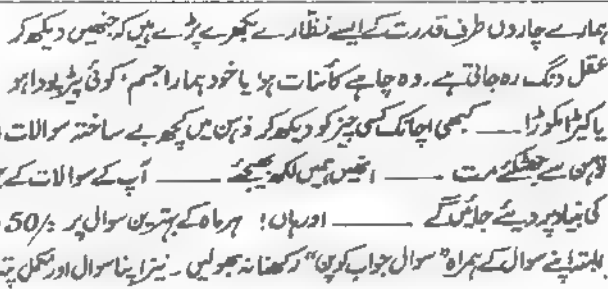 ہمارے چاروں طرف قدرت کے ایسے نظارے بکھرے پڑے ہیں کہ جنھیں دیکھ کر
عقل دنگ رہ جاتی ہے۔ وہ چاہے کائنات ہو یا خود ہمارا جسم، کوئی پیڑ پودا ہو
یا کیڑا مکوڑا ــــ کبھی اچانک کسی چیز کو دیکھ کر ذہن میں کچھ بے ساختہ سوالات
ذہن سے جھٹکئے مت ــــ انھیں ہمیں لکھ بھیجئے ــــ آپ کے سوالات کے
کی بنیاد پر دیئے جائیں گے ــــ اور ہاں! ہر ماہ کے بہترین سوال پر 50/=
البتہ اپنے سوال کے ہمراہ "سوال جواب کوپن" رکھنا نہ بھولیں۔ نیز اپنا سوال اور مکمل پتہ